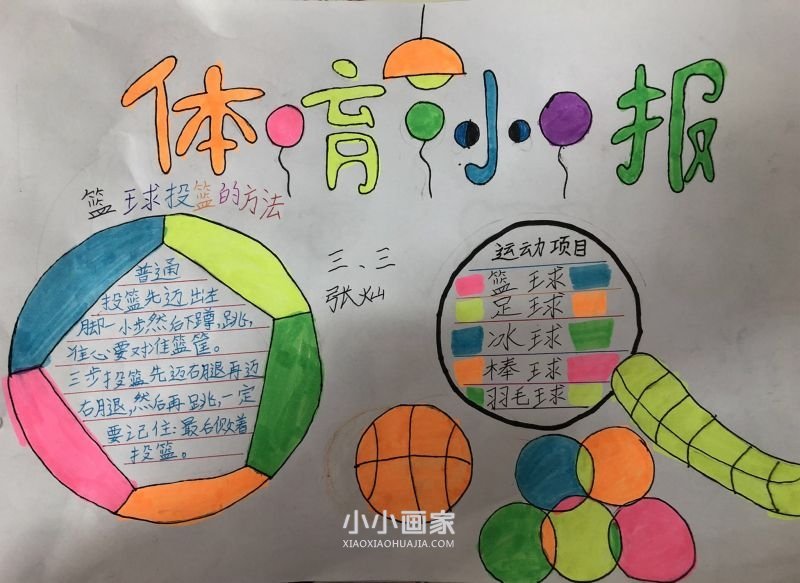 体育小报
篮球投篮的方法
普通
投篮先迈出左
脚一小步然后下蹲,跳,
准心要对准篮筐。
三步投篮先迈右腿再迈
右腿,然后再跳,一定
要记住:最后
投篮。
三、三
张灿
运动项目
篮球
足球
冰球
棒球
羽毛球
小小画家
XIAOXIAOHUAJIA.COM